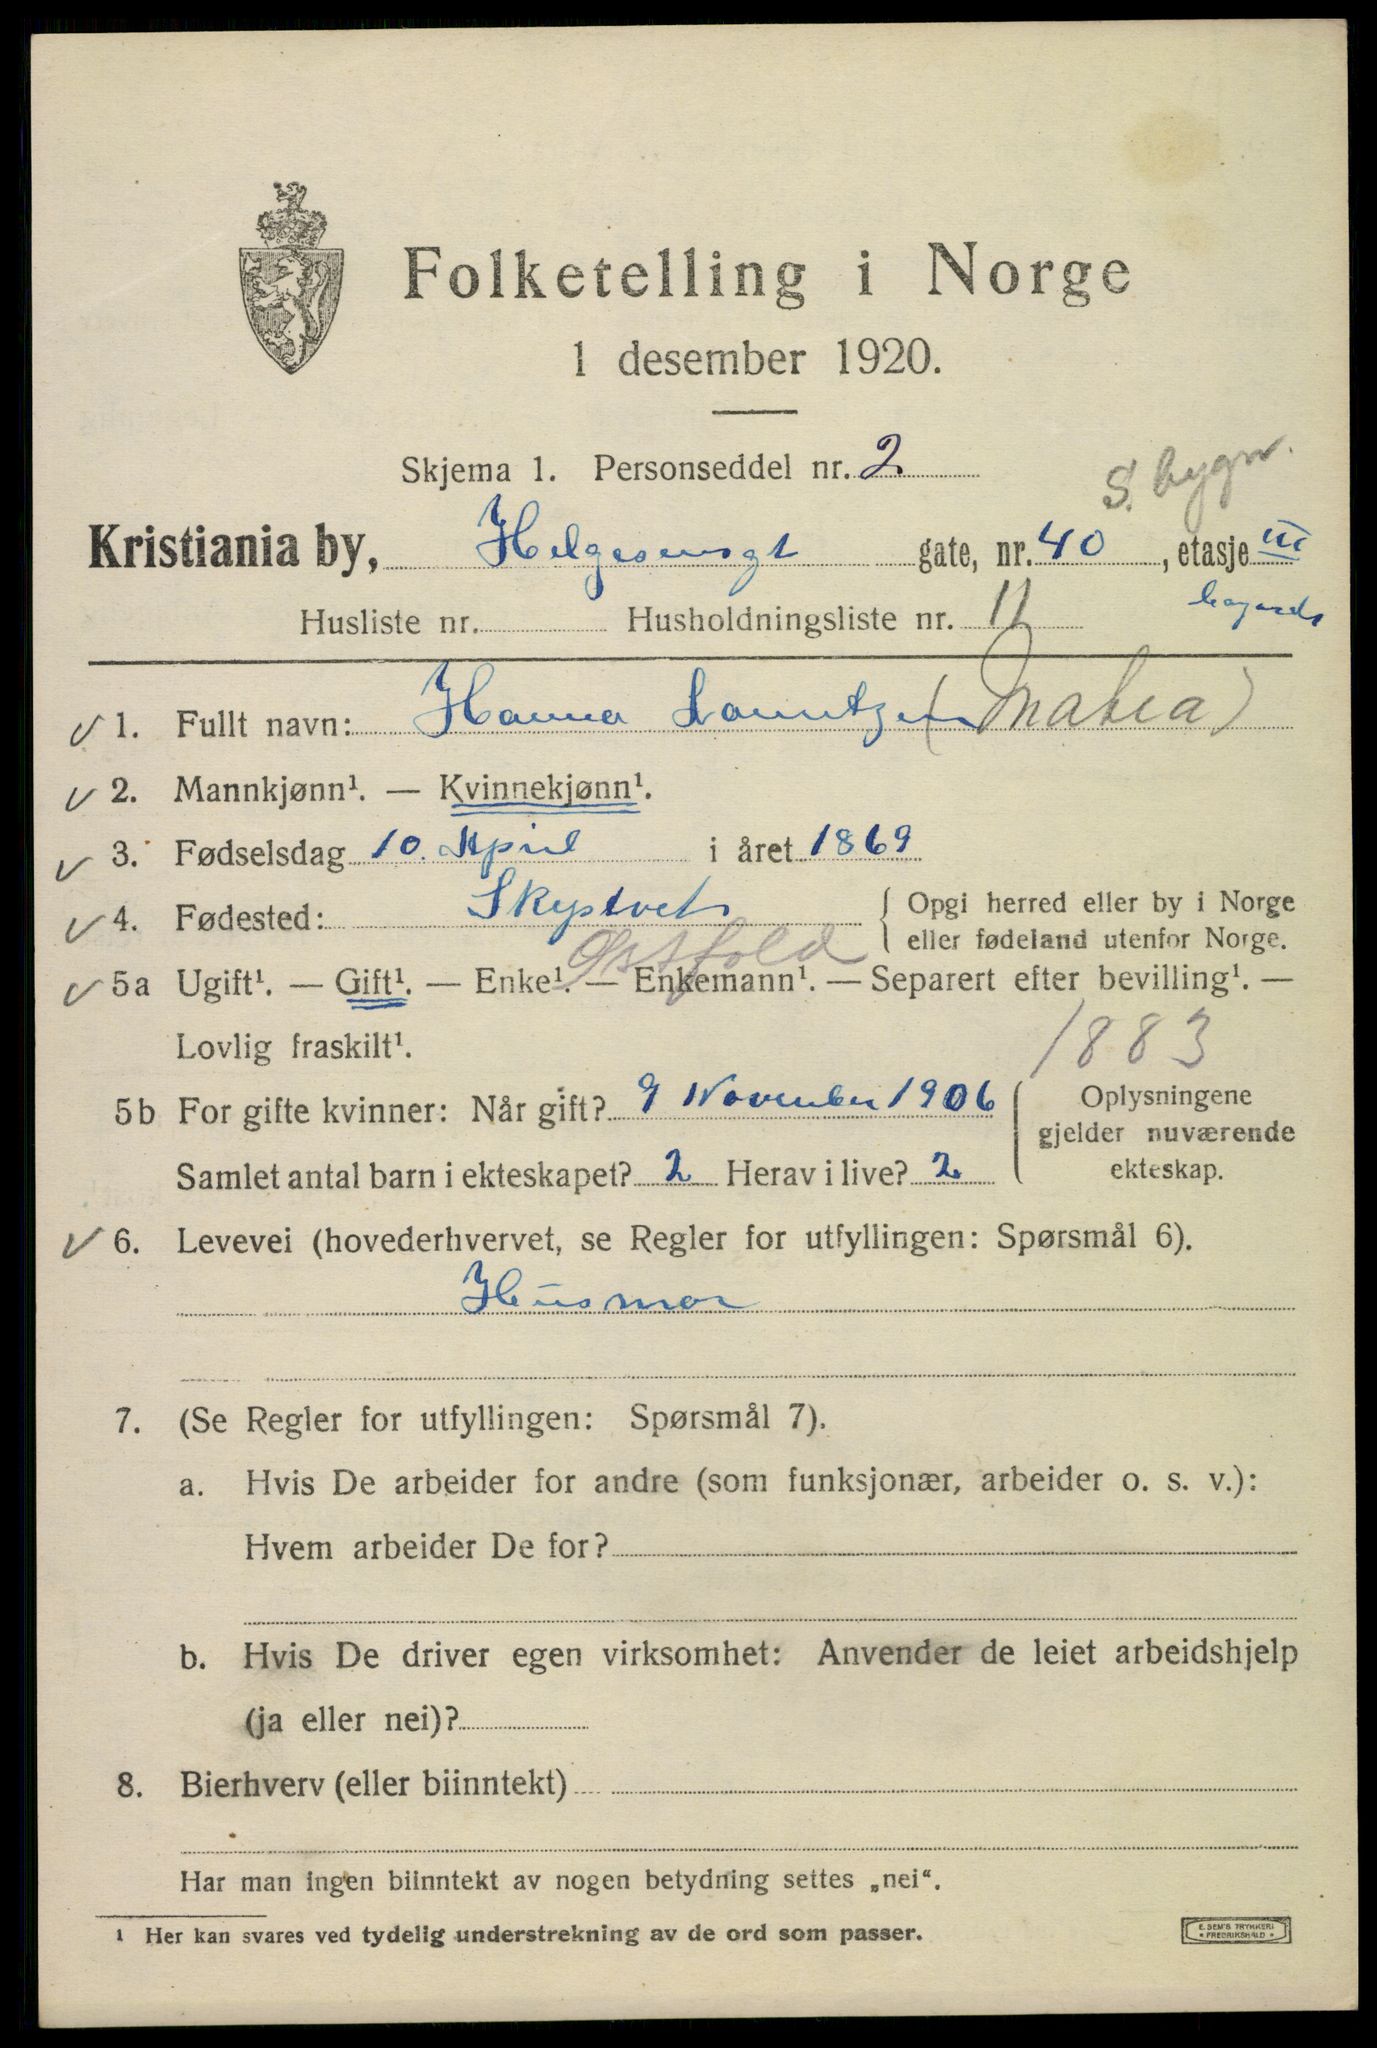 Folketelling i Norge
1 desember 1920.
Skjema 1. Personseddel nr. 2
S. bygn.
Kristiania by, Helgesensgt gate, nr. 40, etasje III
Husliste nr. Husholdningsliste nr. 11 bagaards
1. Fullt navn: Hanna Lauritzen (Maria)
2. Mannkjønn¹. — Kvinnekjønn¹.
3. Fødselsdag 10. April i året 1869
4. Fødested: Skiptvet { Opgi herred eller by i Norge
eller fødeland utenfor Norge.
Østfold
5a Ugift¹. — Gift¹. — Enke¹. — Enkemann¹. — Separert efter bevilling¹. —
Lovlig fraskilt¹.
1883
5b For gifte kvinner: Når gift? 9 November 1906 { Oplysningene
gjelder nuværende
Samlet antal barn i ekteskapet? 2 Herav i live? 2 ekteskap.
6. Levevei (hovederhvervet, se Regler for utfyllingen: Spørsmål 6).
Husmor
7. (Se Regler for utfyllingen: Spørsmål 7).
a. Hvis De arbeider for andre (som funksjonær, arbeider o. s. v.):
Hvem arbeider De for?
b. Hvis De driver egen virksomhet: Anvender de leiet arbeidshjelp
(ja eller nei)?
8. Bierhverv (eller biinntekt)
Har man ingen biinntekt av nogen betydning settes „nei“.
¹ Her kan svares ved tydelig understrekning av de ord som passer.
E. SEM'S TRYKKERI
• FREDRIKSHALD •